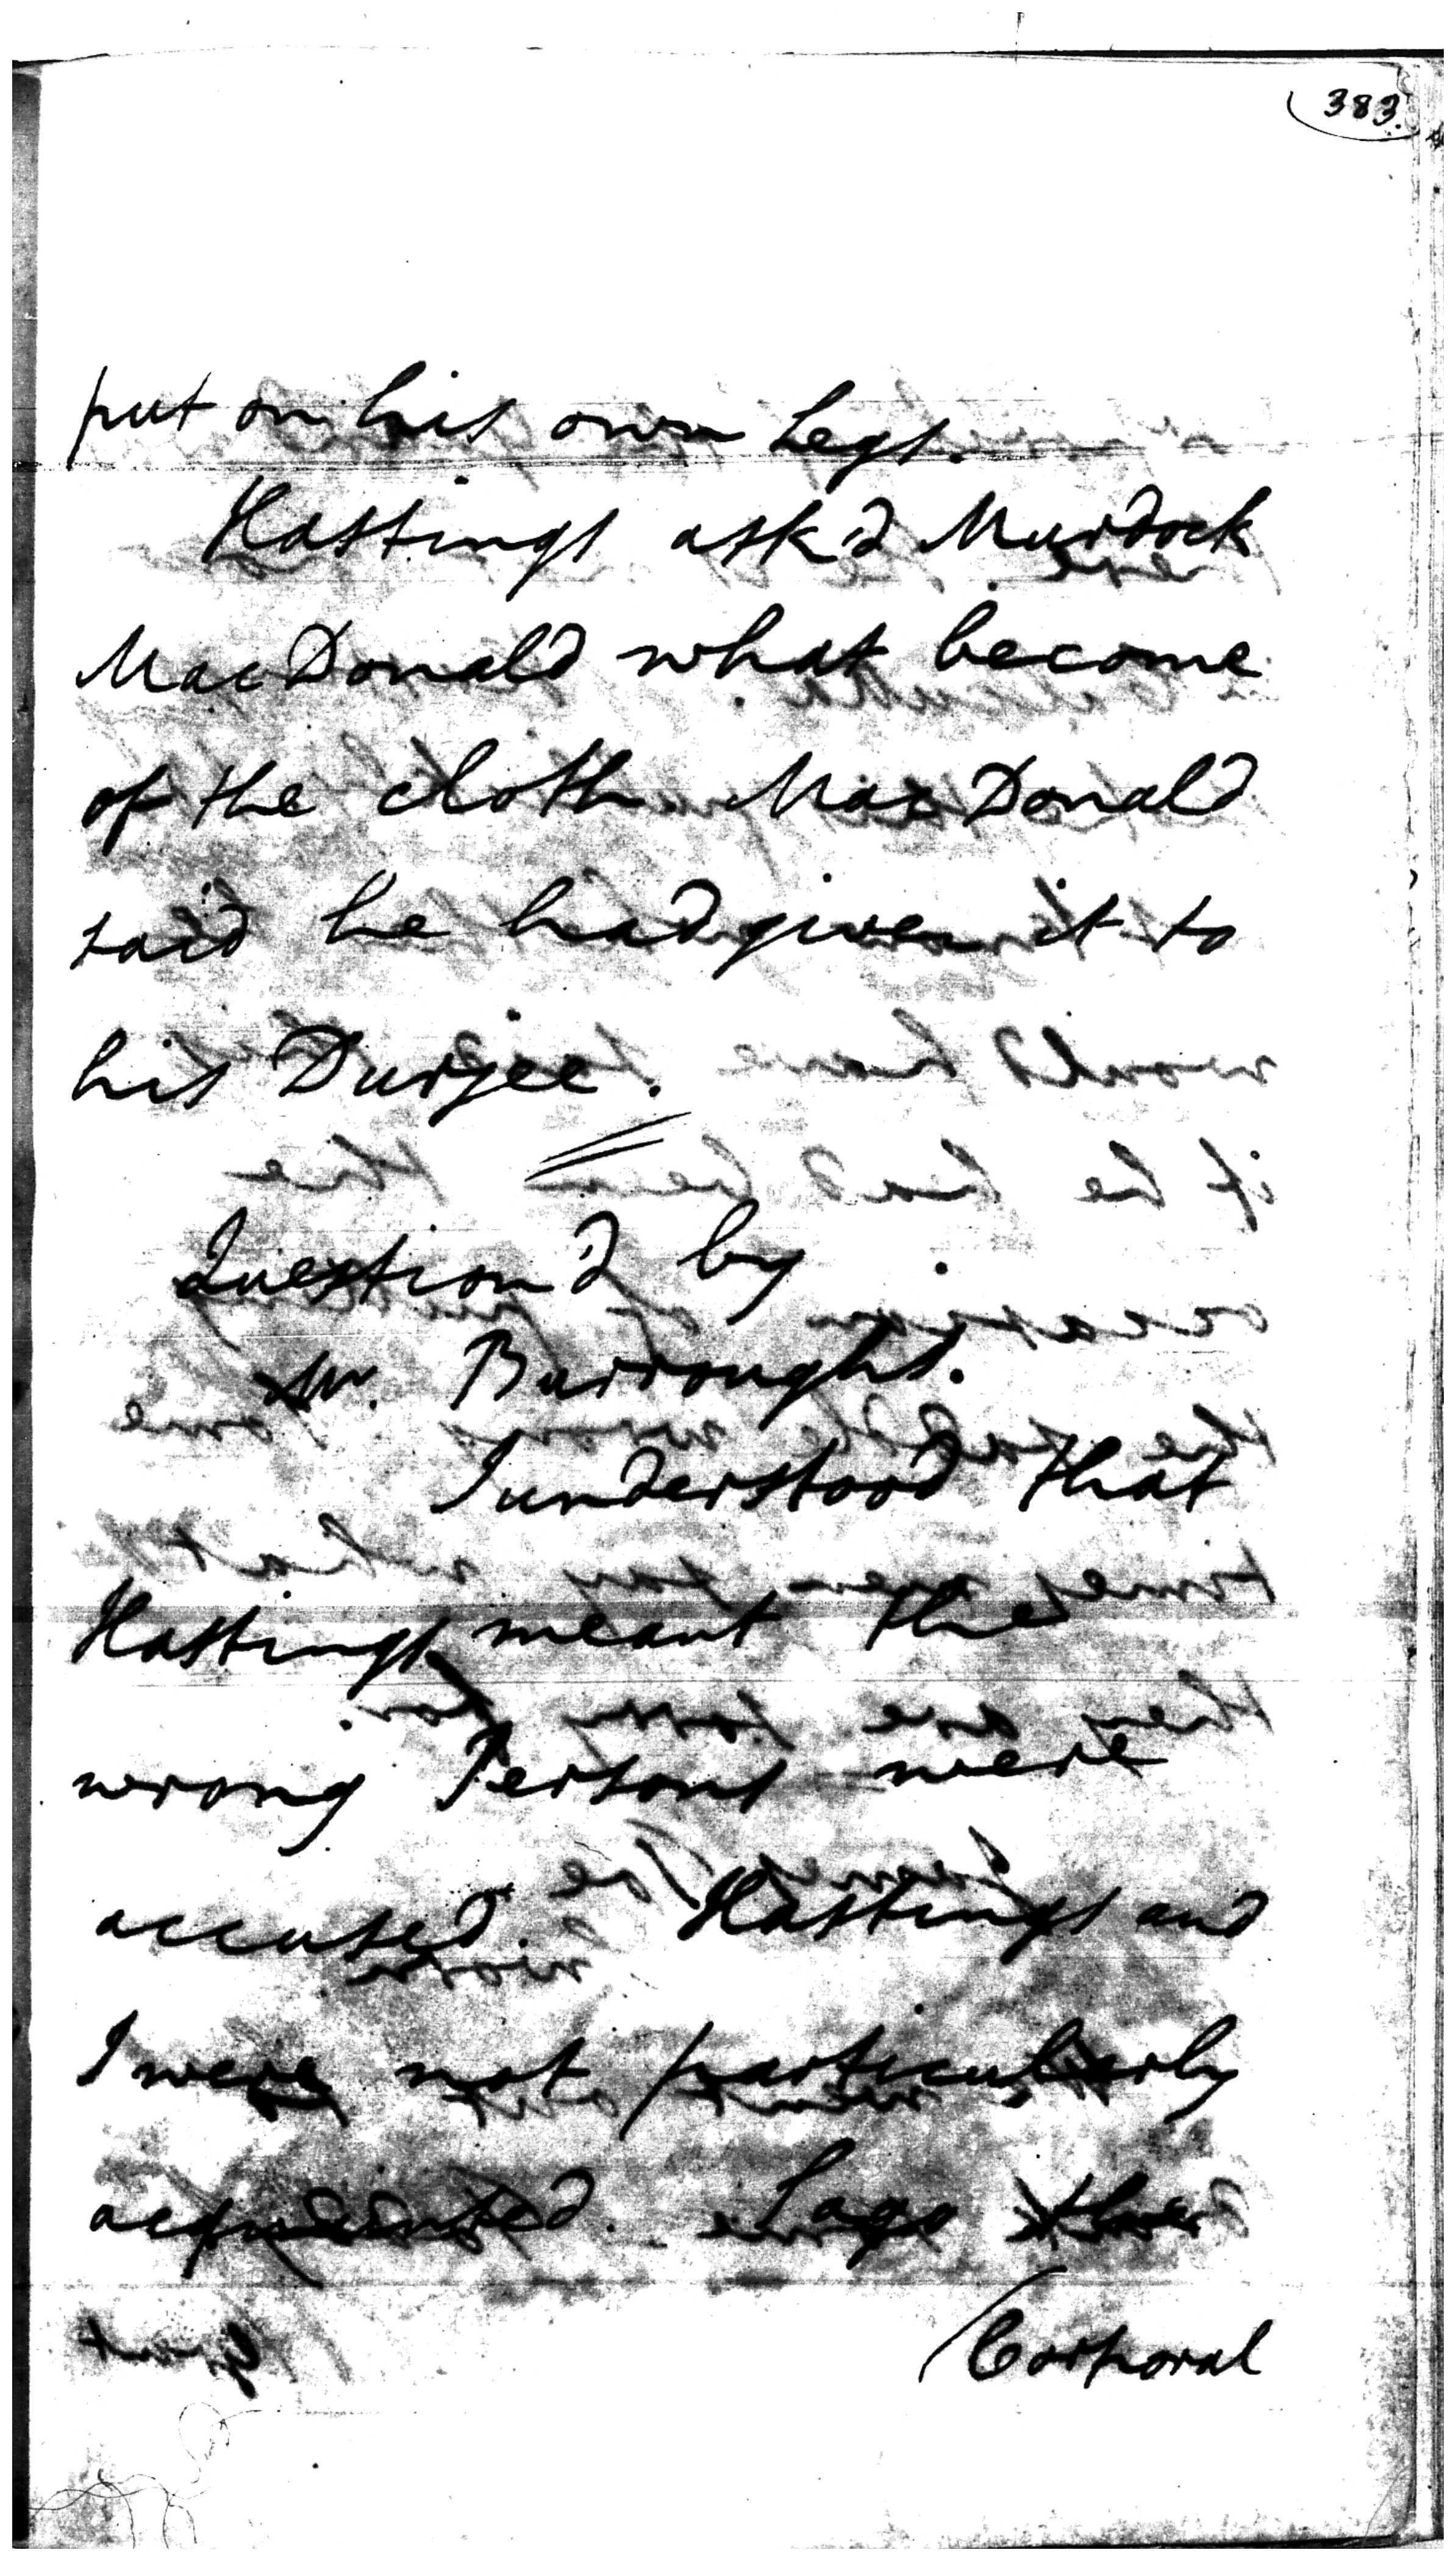 383.
put on his own Legs.
Hastings ask'd Murdock
MacDonald what become
of the cloth MacDonald
said he had given it to
his Durjee.
Question'd by
Mr. Burroughs.
I understood that
Hastings meant the
wrong Persons were
accused. Hastings and
I were not particularly
acquainted. Logo the
Corporal